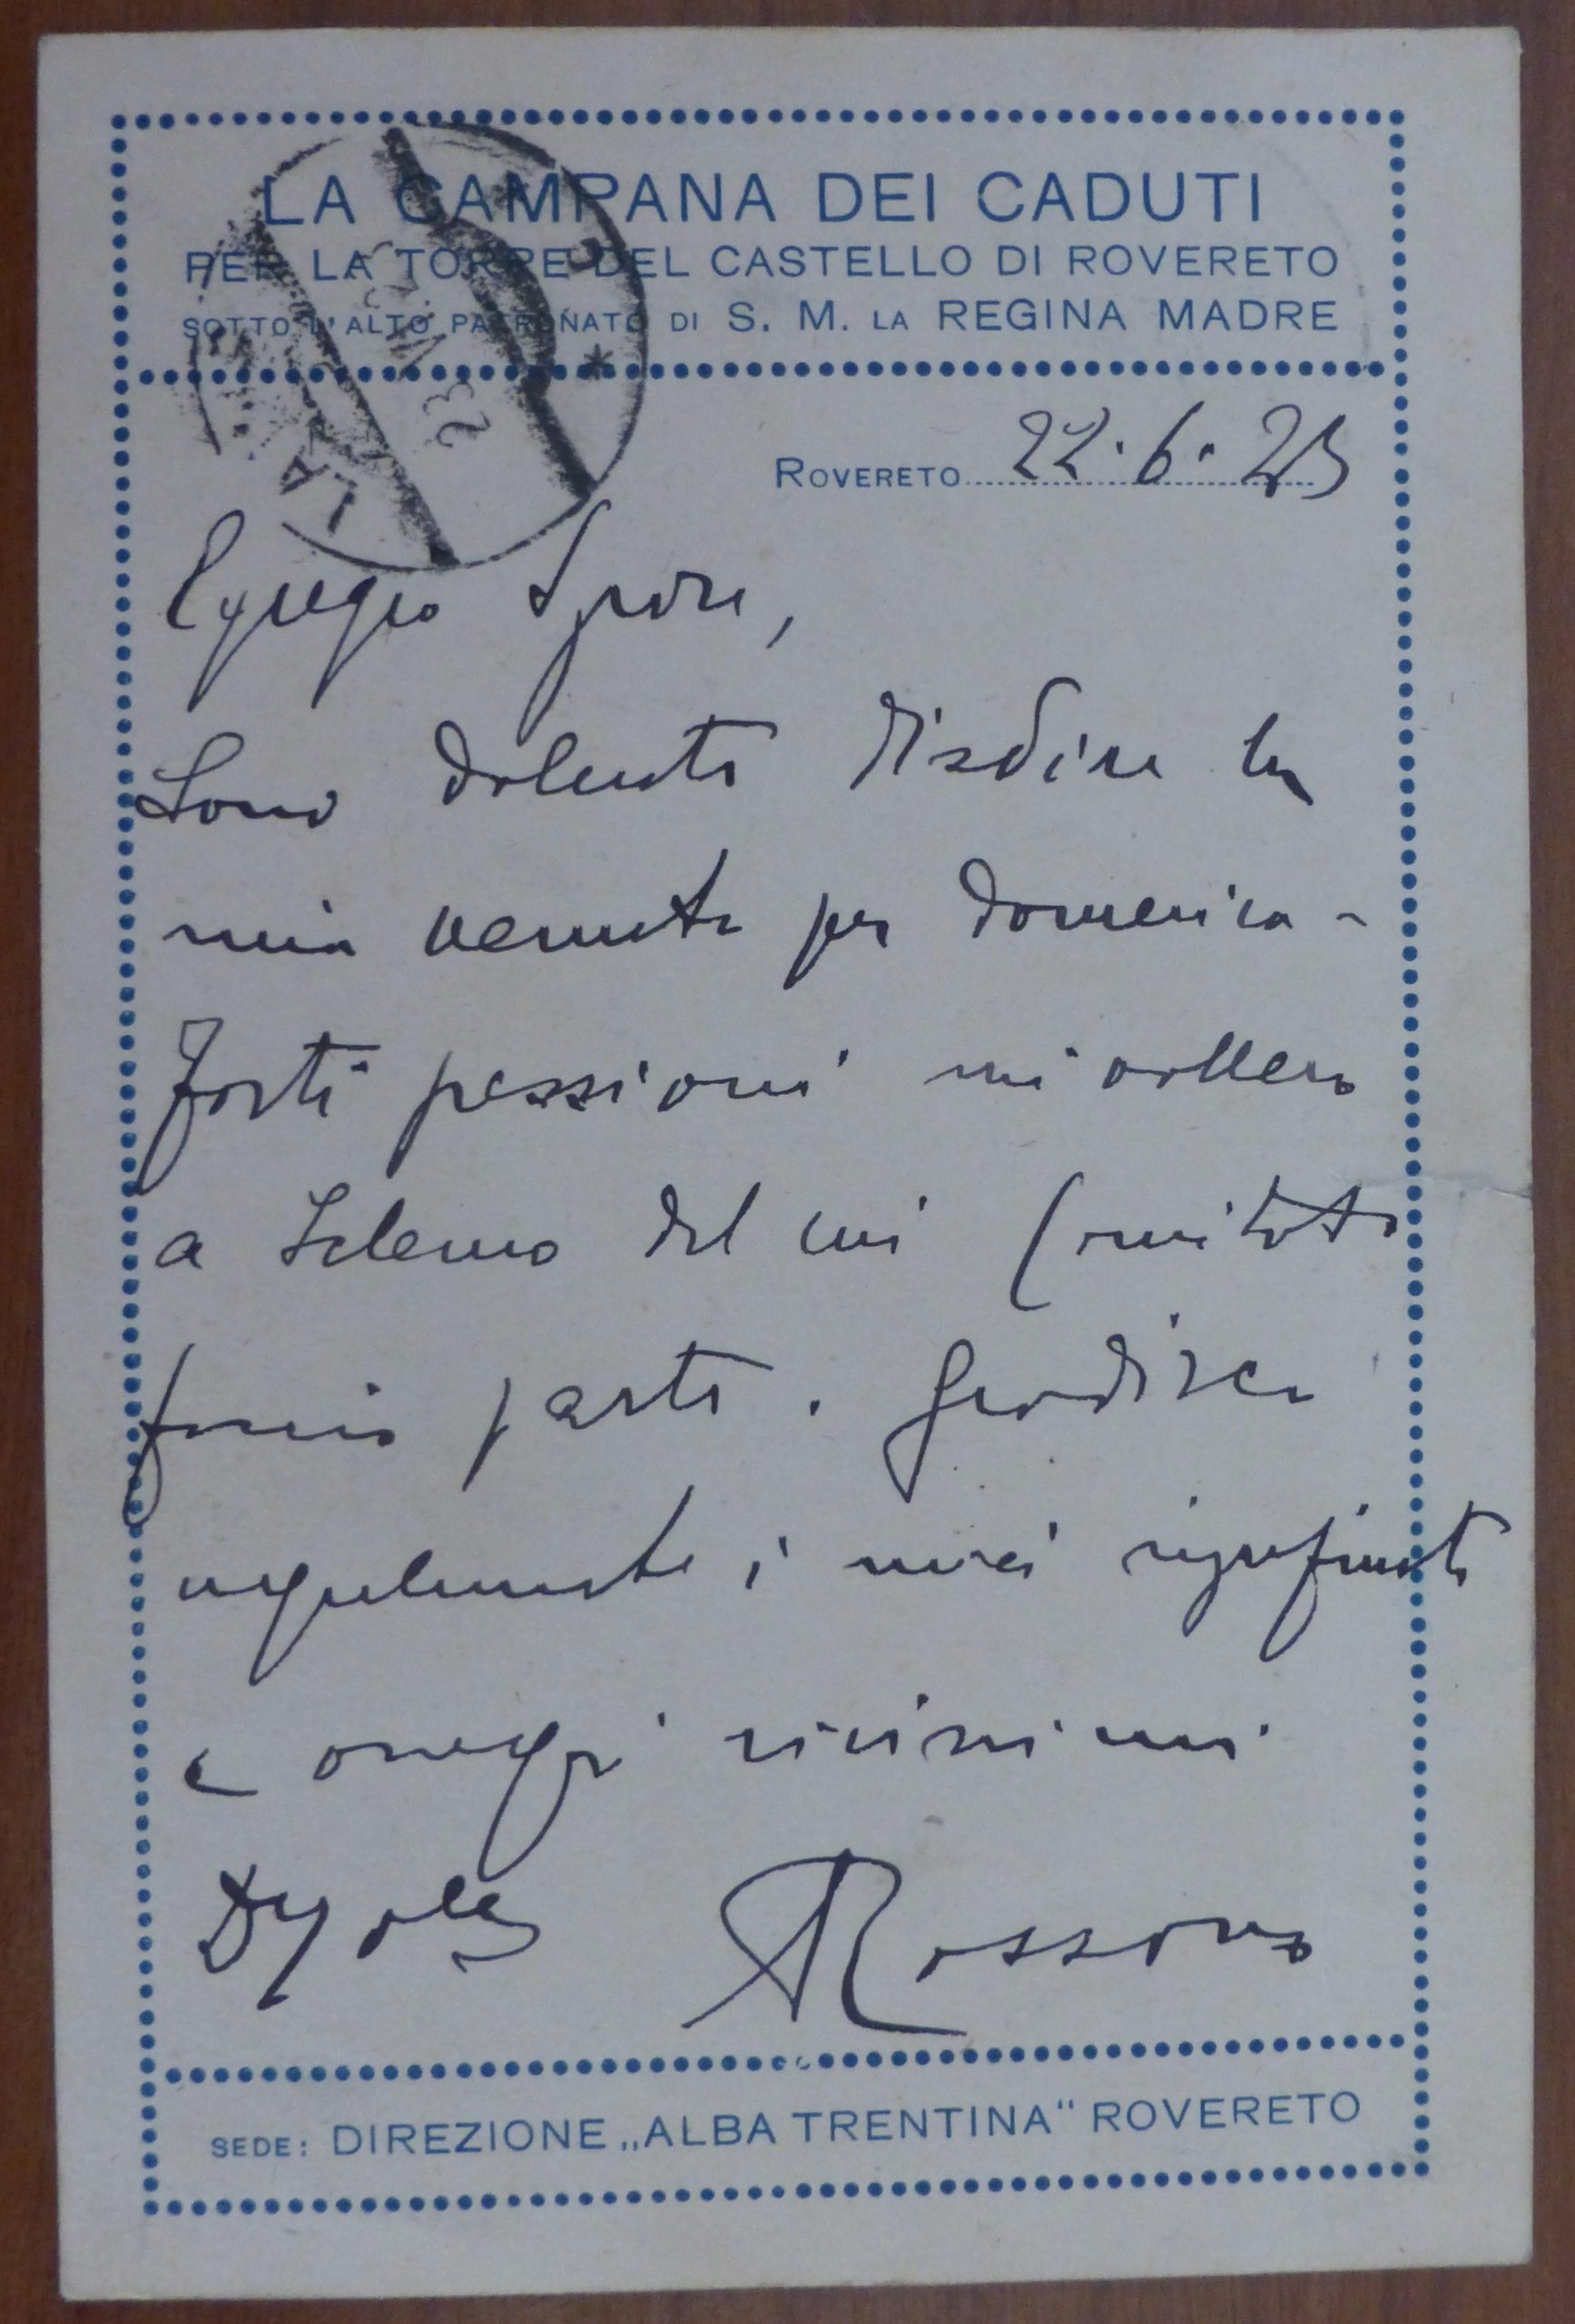 LA CAMPANA DEI CADUTI
PER LA TORRE DEL CASTELLO DI ROVERETO
SOTTO L'ALTO PATRONATO DI S. M. LA REGINA MADRE
23
LA
ROVERETO 22.6.23
Egregio Signore,
Sono dolente disdire la
mia venuta per domenica -
Forti pressioni mi vollero
a Salerno del cui Comitato
faccio parte. Gradisca
egualmente i miei
e omaggi vivissimi
Rossaro
SEDE: DIREZIONE „ALBA TRENTINA“ ROVERETO